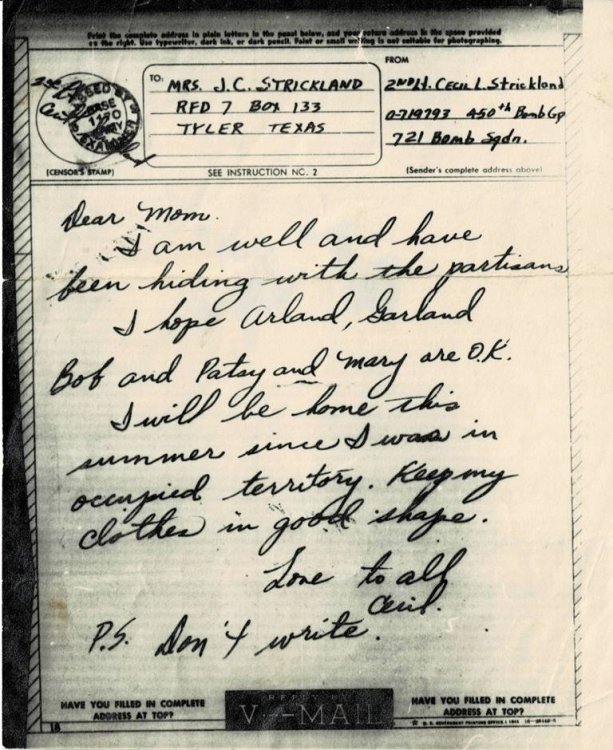 Print the complete address in plain letters in the panel below, and your return address in the space provided
on the right. Use typewriter, dark ink, or dark pencil. Faint or small writing is not suitable for photographing.
PASSED BY
BASE
1170
ARMY
EXAMINER
(CENSOR'S STAMP)
TO:
MRS. J.C. STRICKLAND
RFD 7 BOX 133
TYLER TEXAS
SEE INSTRUCTION NO. 2
FROM
2ND Lt. CECIL L. Strickland
0-719793 450th Bomb Gp
721 Bomb Sqdn.
(Sender's complete address above)
Dear Mom.
I am well and have
been hiding with the partisans
I hope Arland, Garland
Bob and Patsy and Mary are O.K.
I will be home this
summer since I was in
occupied territory. Keep my
clothes in good shape.
Love to all
Cecil.
P.S. Don't write.
HAVE YOU FILLED IN COMPLETE
ADDRESS AT TOP?
REPLY BY
V···—MAIL
HAVE YOU FILLED IN COMPLETE
ADDRESS AT TOP?
18